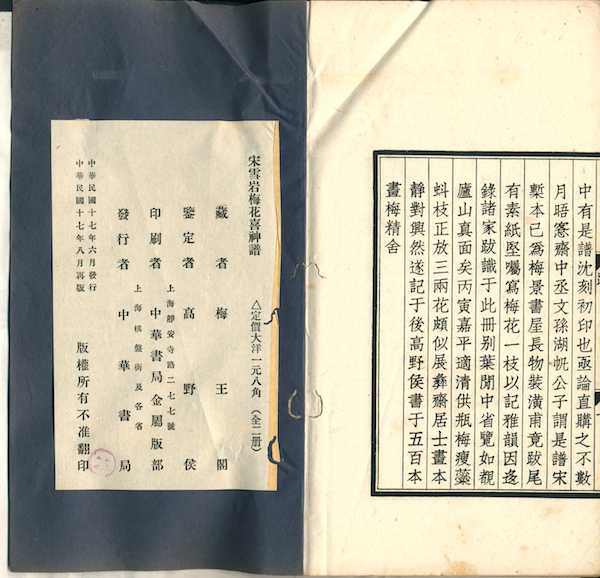 中有是譜沈刻初印也亟論直購之不數
月晤愙齋中丞文孫湖帆公子謂是譜宋
槧本已為梅景書屋長物裝潢甫竟跋尾
有素紙堅囑寫梅花一枝以記雅韻因逐
錄諸家跋識于此冊别葉閒中省覽如覩
廬山真面矣丙寅嘉平適清供瓶梅瘦蘂
蚪枝正放三兩花頗似展彝齋居士畫本
靜對興然遂記于後高野侯書于五百本
畫梅精舍
宋雪岩梅花喜神譜
△定價大洋一元八角（全二册）
藏者梅王閣
鑒定者高野侯
上海靜安寺路二七七號
印刷者中華書局金屬版部
上海棋盤街及各省
發行者中華書局
中華民國十七年六月發行
中華民國十七年八月再版
版權所有不准翻印